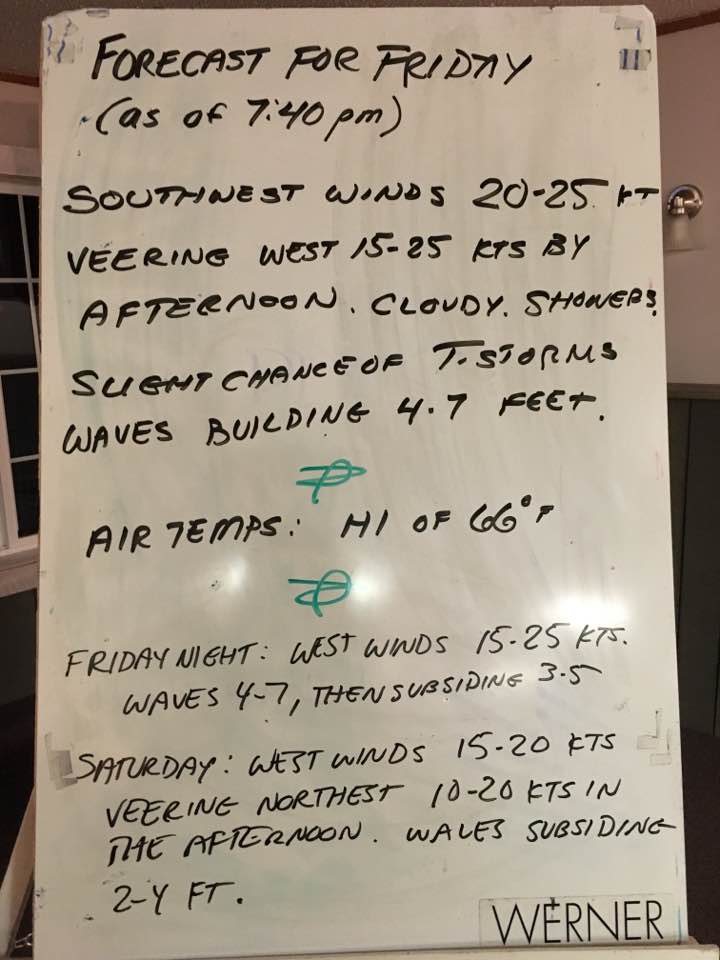 FORECAST FOR FRIDAY
(as of 7:40 pm)
SOUTHWEST WINDS 20-25 KT
VEERING WEST 15-25 KTS BY
AFTERNOON. CLOUDY. SHOWERS.
SLIGHT CHANCE OF T-STORMS
WAVES BUILDING 4-7 FEET.
AIR TEMPS: HI OF 66°F
FRIDAY NIGHT: WEST WINDS 15-25 KTS.
WAVES 4-7, THEN SUBSIDING 3-5
SATURDAY: WEST WINDS 15-20 KTS
VEERING NORTHEST 10-20 KTS IN
THE AFTERNOON. WALES SUBSIDING
2-4 FT.
WERNER